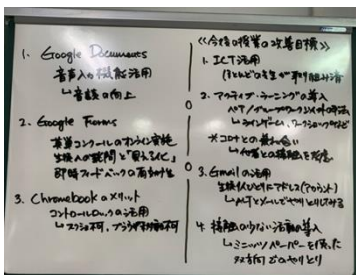 1. Google Documents
音声入力機能活用
↳音読の向上
2. Google Forms
英単コンクールのオンライン実施
生徒への質問と「見える化」
即時フィードバックの有効性
3. Chromebookのメリット
コントロールロックの活用
↳スクショ不可、ブラウザ移動不可
≪今後の授業の改善目標≫
1. ICT活用
ほとんどの先生が取り組み済
2. アクティブ・ラーニングの導入
ペア/グループワークメインの手法
↳ラインゲーム、ワークショップなど
*コロナとの兼ね合い
↳他者との接触を考慮
3. Gmailの活用
生徒1人ひとりにアドレス(アカウント)
↳ALTとメールでやりとりしてみる
4. 接触の少ない活動の導入
↳ミニッツペーパーを使った
双方向のやりとり